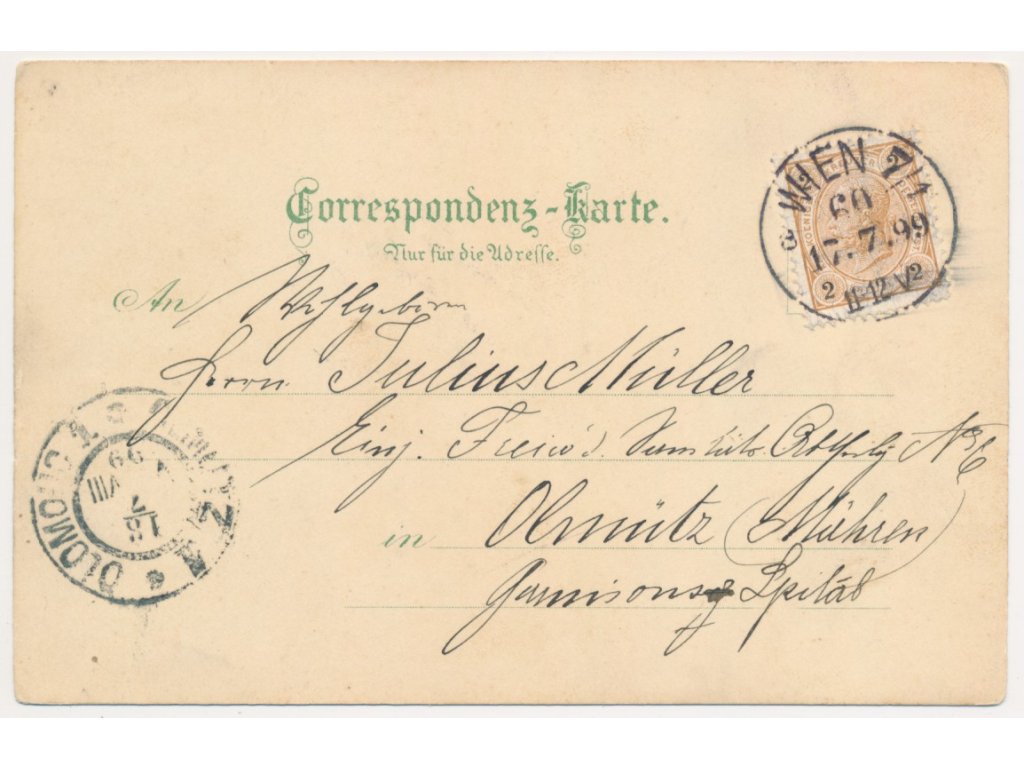 Correspondenz-Karte.
Nur für die Adresse.
An Wohlgeboren
Herrn Julius Müller
Einj. Freiw.
in Olmütz (Mähren)
Garnisons Spital
WIEN 7/1
60
17.7.99
2 11-12 V 2
OLOMOUC 1
18 7 99 VIII